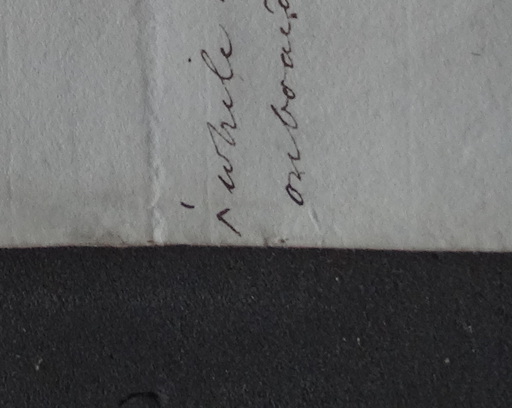 while
onboard